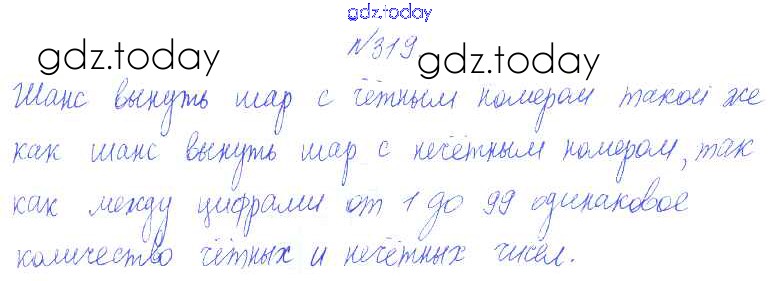 gdz.today
№319
gdz.today gdz.today
Шанс вынуть шар с чётным номером такой же
как шанс вынуть шар с нечётным номером, так
как между цифрами от 1 до 99 одинаковое
количество чётных и нечётных чисел.